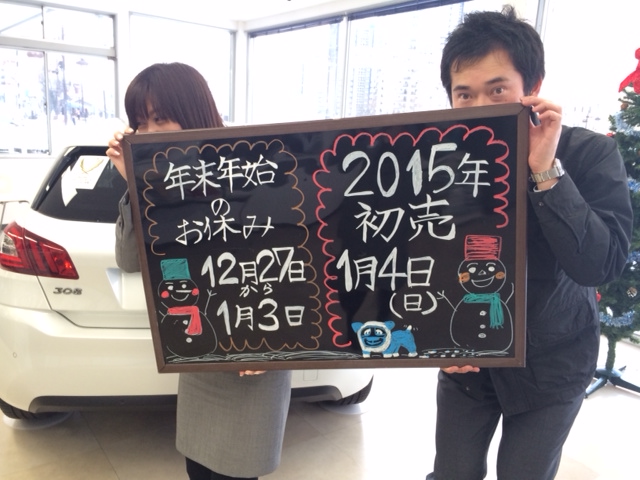 年末年始
の
お休み
12月27日
から
1月3日
2015年
初売
1月4日
(日)
308